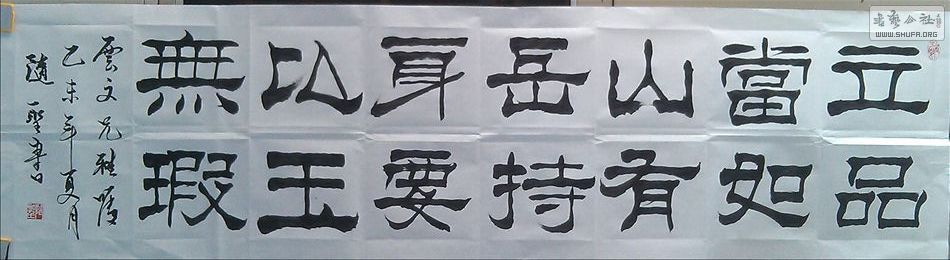 立品
當如
山有
岳持
身要
以玉
無瑕
雲文兄雅
乙未年夏月
聖書
書藝公社
WWW.SHUFA.ORG